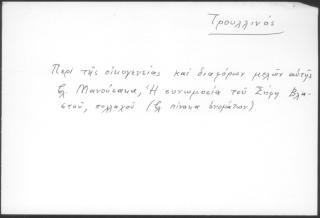 Τρουλλινός
Περὶ τῆς οἰκογενείας καὶ διαφόρων μελῶν αὐτῆς
βλ. Μανούσακα, Ἡ συνωμοσία τοῦ Σήφη Βλα-
στοῦ, πολλαχοῦ (βλ πίνακα ὀνομάτων)